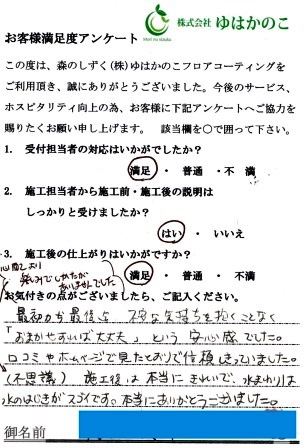 Mori no sizuku
株式会社 ゆはかのこ
お客様満足度アンケート
この度は、森のしずく(株)ゆはかのこフロアコーティングを
ご利用頂き、誠にありがとうございました。今後のサービス、
ホスピタリティ向上の為、お客様に下記アンケートへご協力を
賜りたくお願い申し上げます。 該当欄を○で囲って下さい。
1. 受付担当者の対応はいかがでしたか?
満足 ・ 普通 ・ 不 満
2. 施工担当者から施工前・施工後の説明は
しっかりと受けましたか?
はい ・ いいえ
3. 施工後の仕上がりはいかがですか?
満足 ・ 普通 ・ 不満
心配しており
ありませんでした
お気付きの点がございましたら、ご記入ください。
最初から最後まで 不安な気持ちを抱くことなく
「おまかせすれば大丈夫」という 安心感でした。
口コミやホームページで見たとおりで信頼しきっていました。
(不思議) 施工後は本当にきれいで、水まわりは
水のはじきがスゴイです。本当にありがとうございました。
御名前